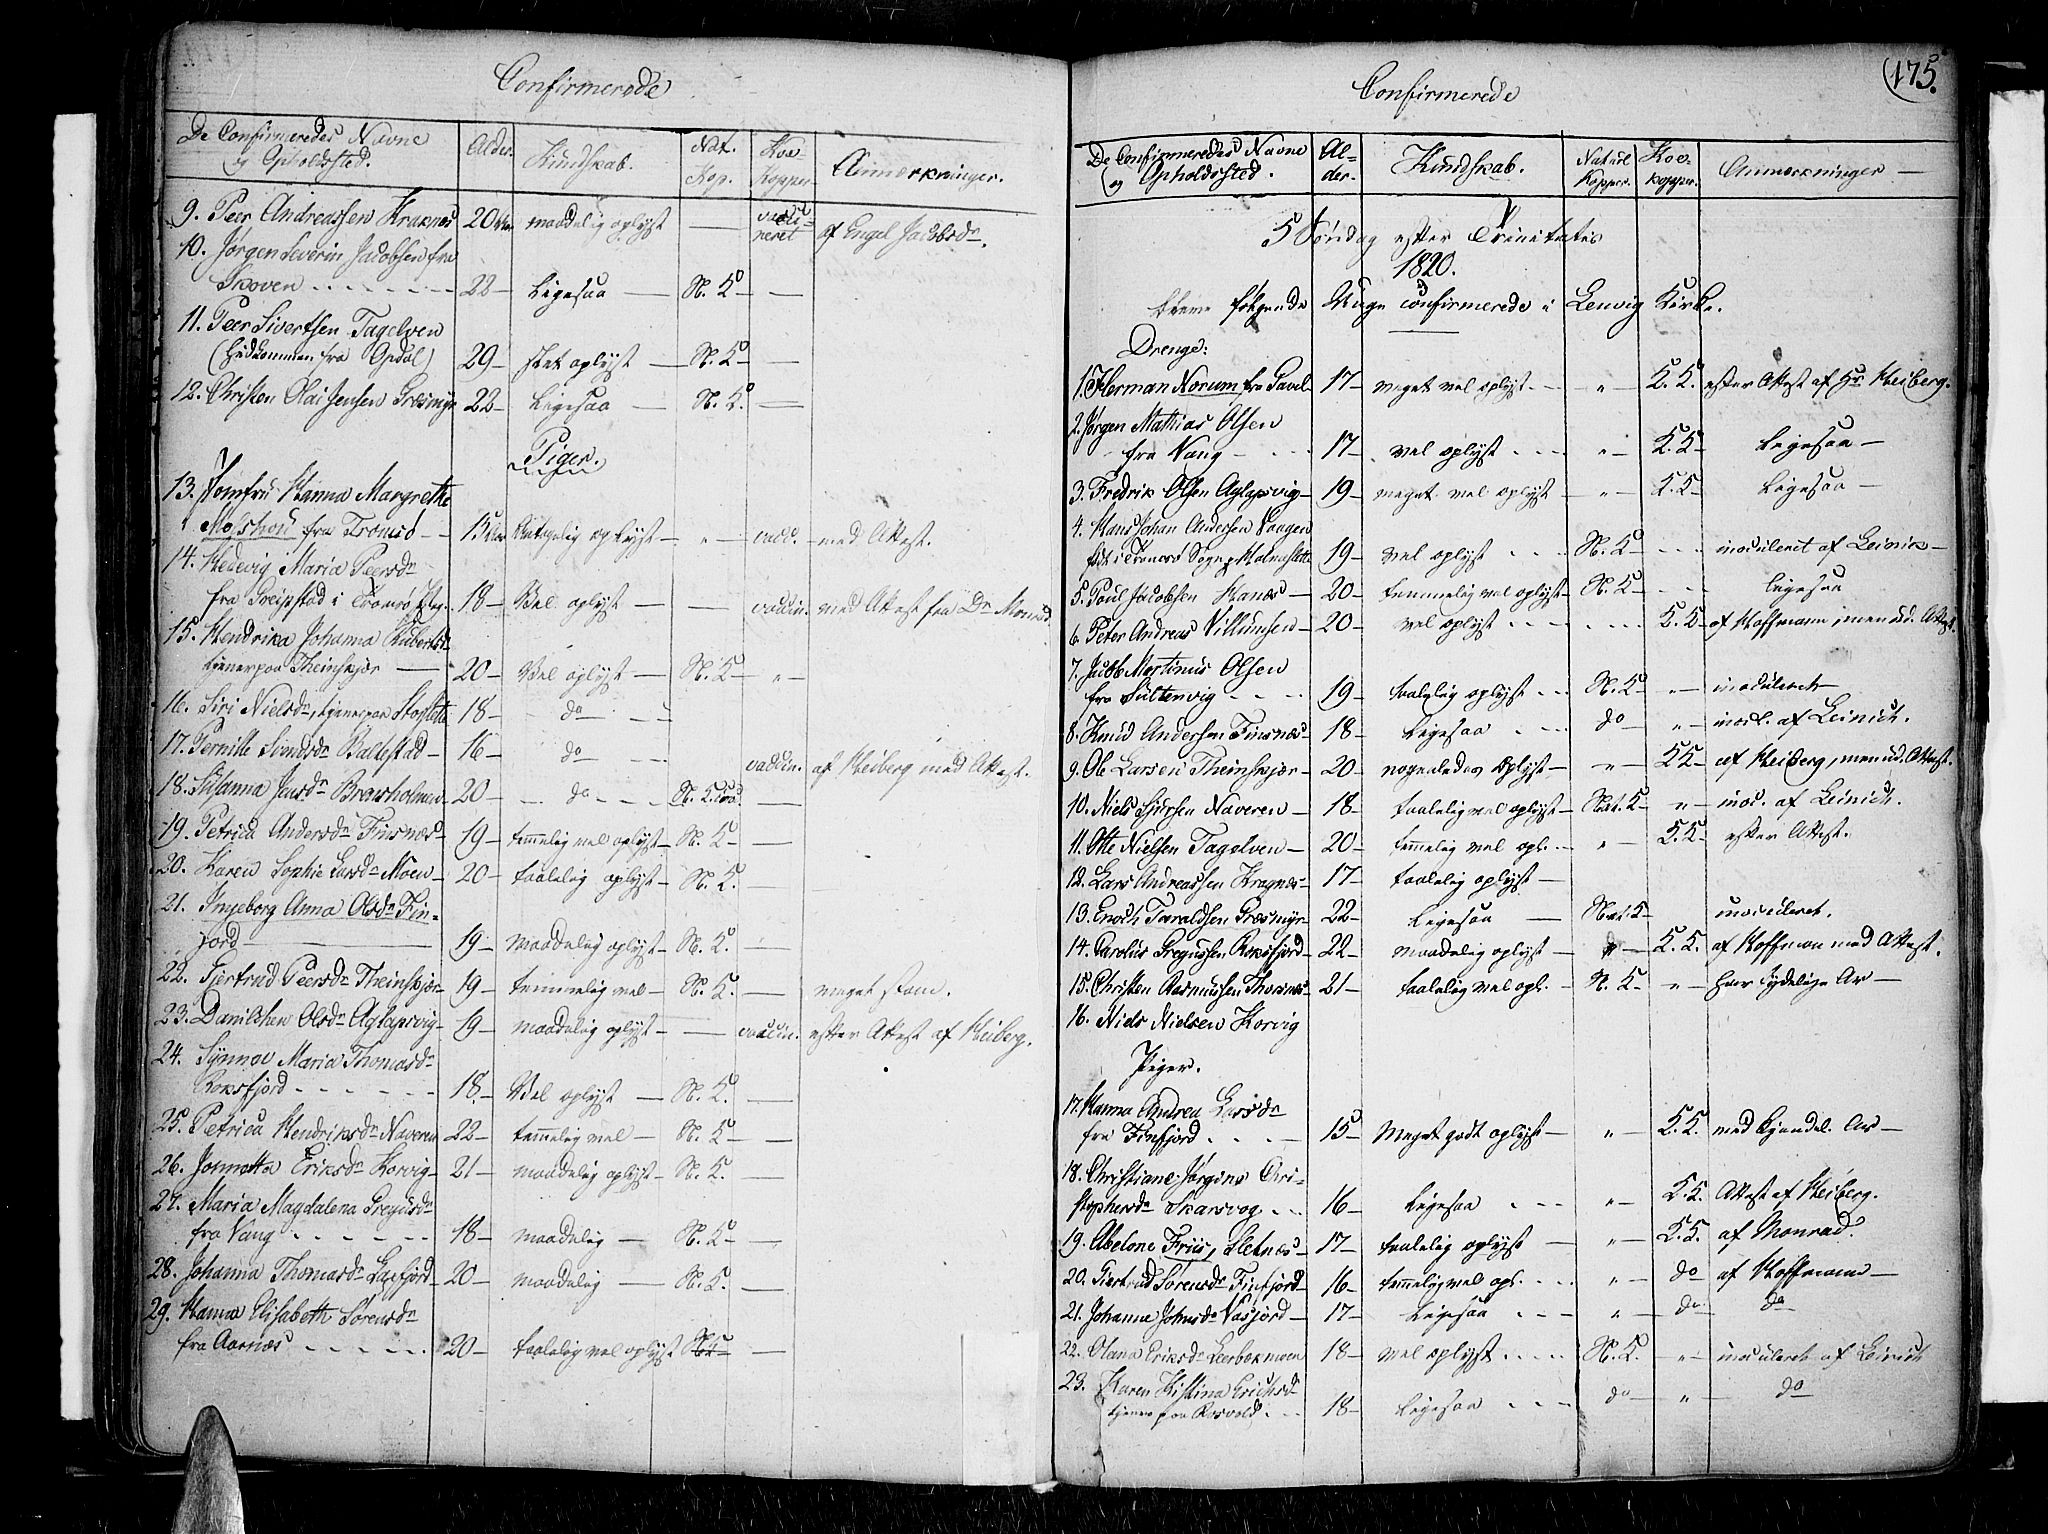 Confirmerede
De Confirmeredes Navne og Opholdssted. Alder. Kundskab. Nat. Kop. Koe Kopper Anmærkninger.
9. Peer Andreassen Kraknes 20 maadelig oplyst — vacci-neret af Engel Jacobsdr.
10. Jørgen Severin Jacobsen fra
Skoven - - - - 22 — Ligesaa — N. K — —
11. Peer Sivertsen Tagelven
(hidkommen fra Opdal) 29 — slet oplyst — N. K — —
12. Christen Olai Jensen Græsmyr 22 — Ligesaa — N. K. —
Piger.
13. Jomfru Hanna Margrethe
fra Tromsø — 15 oplyst — " — vacc. — med Attest.
14. Hedevig Maria Peersdr
fra Greipstad i Tromsø 18 — Vel oplyst — — vaccin. med Attest fra Dr Monrad.
15. Hendrika Johanna
tjener paa Theinskjær — 20 — Vel oplyst — N. K — " —
16. Siri Nielsdr, tjener paa 18 — do — —
17. Pernille Simdsdr Balletstad — 16 — do - - - vaccin. af Heiberg med Attest.
18. Susanna Jansdr 20 — do - - - N. K. —
19. Petrica Andersdr Finsnæs — 19 — temmelig vel oplyst — N. K — —
20. Karen Sophie Larsdr Moen — 20 — taalelig oplyst — N. K. —
21. Ingeborg Anna Olsdr Fin-
fjord — 19 — Maadelig oplyst — N. K. —
22. Giertrud Peersdr Theinskjær — 19 — temmelig vel — N. K. — meget sløv.
23. Danilchen Olsdr Aglapsvig — 19 — maadelig oplyst — — vaccin. efter Attest af Heiberg.
24. Synnøe Maria Thomasdr
Roksfjord - - - - 18. — Vel oplyst — N. K. —
25. Petrica Hendriksdr Naveren 22 — temmelig vel — N. K — —
26. Jonnetta Eriksdr Korvig — 21 — maadelig oplyst — N. K. —
27. Maria Magdalena Gregusdr
fra Vang - - - - 18 — maadelig — N. K — —
28. Johanna Thomasdr Laxfjord 20 — maadelig — N. K. —
29. Hanna Elisabeth Sørensdr
fra Aarnæs - - - - 20 — taalelig vel oplyst N. K — —
Confirmerede
(175.
De Confirmeredes Navne og Opholdssted. Al-der. Kundskab. Naturl. Kopper. Koe-kopper. Anmærkninger —
5 Søndag efter Trinitatis
1820.
bleve følgende Unge confirmerede i Lenvig Kirke.
Drenge:
1. Herman Norum fra Gavel 17 — meget vel oplyst - - " K. K. efter Attest af Hr Heiberg.
2. Jørgen Mathias Olsen
fra Vang - - - 17 — vel oplyst - - - " — K. K — Ligesaa —
3. Fredrik Olsen Aglapsvig — 19 — meget vel oplyst — " — K. K — Ligesaa —
4. Hans Johan Andersen Vaagen
født i Tromsø Sogn, 19 — vel oplyst - - - N. K — - - - inoculeret af Leinik —
5. Poul Jacobsen Hanæs — 20 — temmelig vel oplyst — N. K — - - - Ligesaa
6. Peter Andreas Villumsen — 20 — vel oplyst - - - - - - K. K — af Hoffmann, men ud. Attest.
7. Jacob Martinus Olsen
fra Sultenvig - - - 19 — taalelig oplyst - - N. K — " — inoculeret —
8. Knud Andersen Finsnæs — 18 — Ligesaa - - - do " — inoc. af Leinich.
9. Ole Larsen Theinskjær — 20 — nogenledes oplyst — " — K K — af Heiberg, men ud. Attest.
10. Niels Siursen Naveren — 18 — taalelig vel oplyst — Nat. K — " — inoc. af Leinich.
11. Otte Nielsen Tagelven — 20 — temmelig vel opl. - - " — K. K — efter Attest.
12. Lars Andreassen Kragnæs — 17 — taalelig oplyst —
13. Enoch Taraldsen Græsmyr — 22 — Ligesaa — Nat. K — inoculeret.
14. Carolus Gregussen Roksfjord — 22 — maadelig oplyst — " — K. K. af Hoffman med Attest.
15. Christen Rasmussen Thorsnæs — 21 — taalelig vel opl. — N. K — " — har tydelige Ar —
16. Niels Nielsen Korvig
Piger.
17. Hanna Andrea Larsdr
fra Finfjord - - - 15 — Meget godt oplyst — " — K. K. med kjendel. Ar —
18. Christiane Jørgine Chri-
stophersdr Skarsvog - - 16 — Ligesaa - - - " — K. K. Attest af Heiberg.
19. Abelone Friis, Sletnæs — 17 — taalelig oplyst — " — K. K. af Monrad.
20. Giertrud Sørensdr Finfjord — 16 — temmelig vel opl. - - - " — do af Hoffmann —
21. Johanna Johnsdr Vasjord — 17 — Ligesaa - - - " do do
22. Olana Eriksdr Leerbekmoen 18 — vel oplyst - - - N. K. " — inoculeret af Leinich
23. Karen Kistina Erichsd
tjener paa Rosvold - - - 18 — Ligesaa - - - do " — do